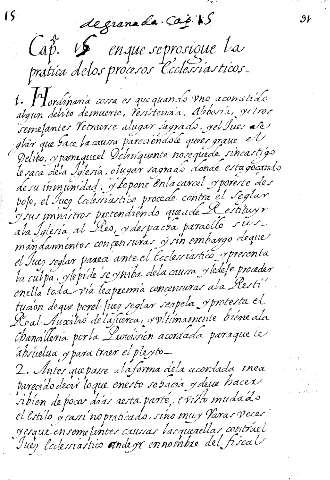 15 de granada. Cap. 15 31
Cap. 15 en que se prosigue la
pratica de los procesos Ecclessiasticos.
1. Hordinaria cosa es que quando uno a cometido
algun delito de muerte, Resistencia, Alebosia, y otros
semejantes Retraerse a lugar sagrado, y el Juez se
glar que hace la causa pareciendole que es grave el
Delito, y para que el Delinquente no se quede sin castigo
le saca de la Iglesia, o lugar sagrado donde esta goçando
de su inmunidad, y le pone en la carcel y por ese des
pojo, el Juez Ecclesiastico procede contra el seglar
y sus ministros pretendiendo que a de Restituyr
a la Iglesia al Reo, y despacha para ello sus
mandamientos con çensuras y sin embargo de que
el Juez seglar pareçe ante el Ecclesiastico y presenta
la culpa, y le pide se ynhiba de la causa y le deje proceder
en ella toda via le apremia con censuras a la Resti
tucion de que por el Juez seglar se apela, y protesta el
Real Auxilio de la fuerça, y ultimamente viene a la
chancilleria por la Provision acordada para que le
absuelva y para traer el pleyto.
2. Antes que pase a la forma de la acordada me a
parecido decir lo que en esto se haçia y deve hacer
si bien de pocos dias a esta parte, e visto mudado
el estilo y casi no praticado, sino muy Raras veces
y es que en semejantes causas las querellas contra el
Juez Ecclesiastico an de yr en nombre del fiscal